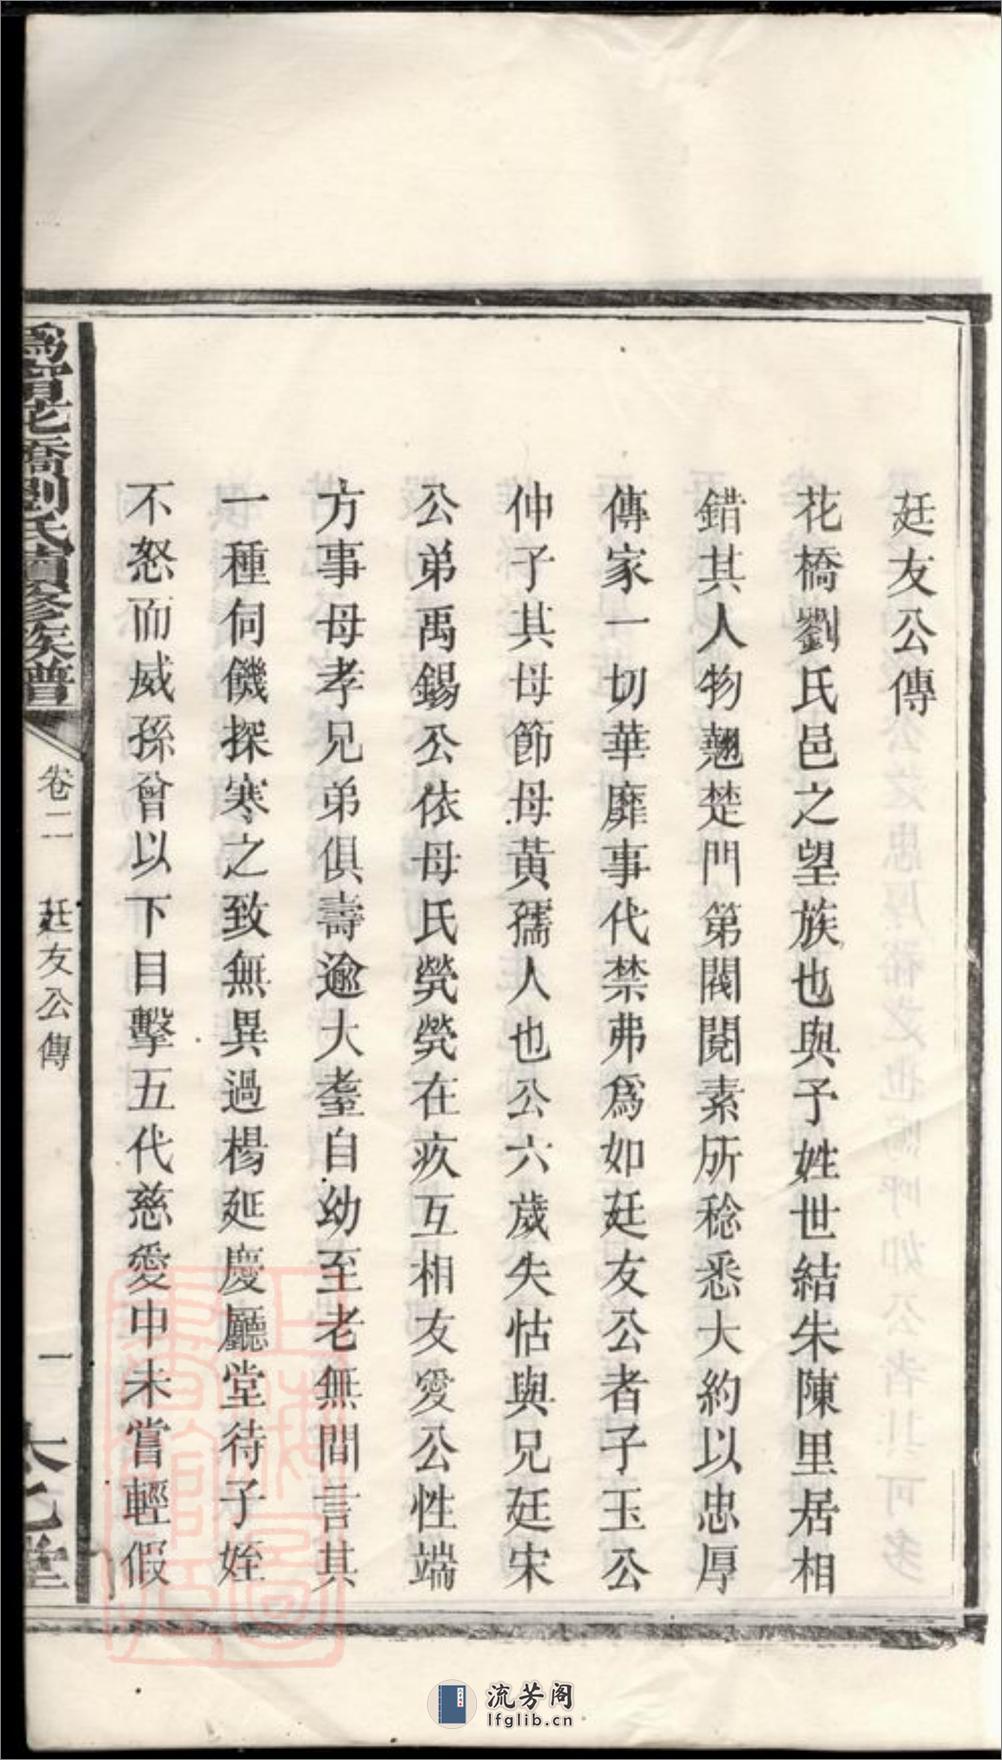 廷友公傳
花橋劉氏邑之望族也與予姓世結朱陳里居相
錯其人物翹楚門第閥閱素所稔悉大約以忠厚
傳家一切華靡事代禁弗爲如廷友公者子玉公
仲子其母節母黃孺人也公六歲失怙與兄廷宋
公弟禹錫公依母氏煢煢在疚互相友愛公性端
方事母孝兄弟俱壽逾大耋自幼至老無間言其
一種伺饑探寒之致無異過楊延慶廳堂待子姪
不怒而威孫曾以下目擊五代慈愛中未嘗輕假
花橋劉氏續修族譜
卷二 廷友公傳 一
乙堂
流芳阁
lfglib.cn